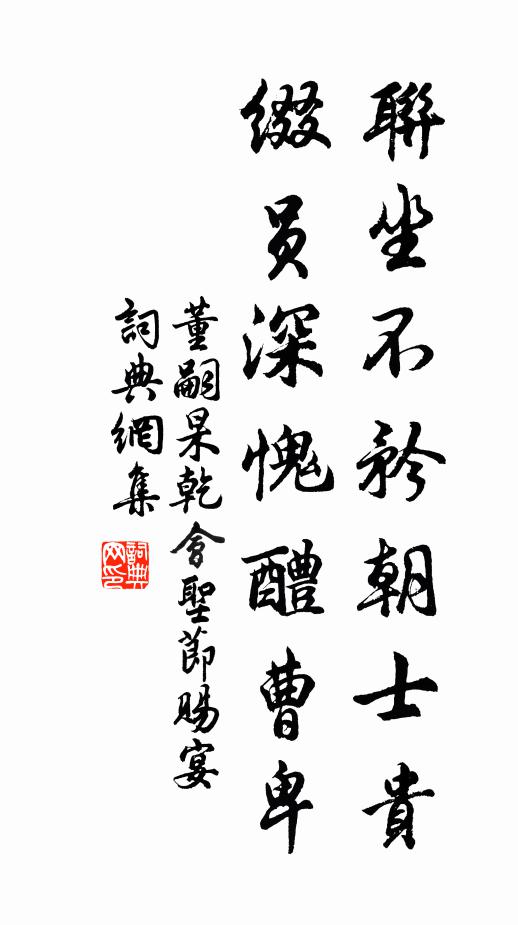 聯坐不矜朝士貴
綴員深愧醴曹卑
董嗣杲乾會聖節賜宴
詞典網集
詞典网印